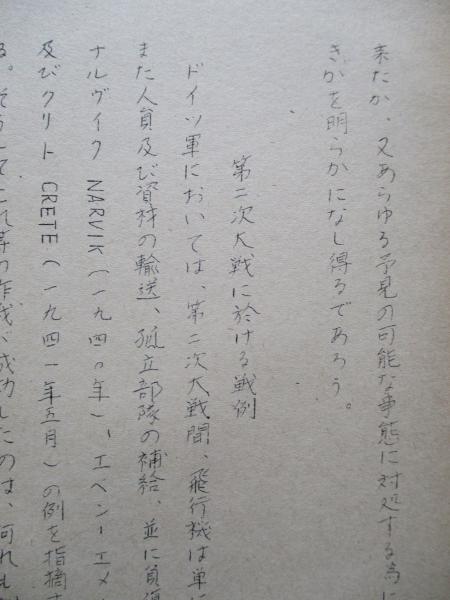 来たか、又あらゆる予見の可能な事態に対処する為に
きかを明らかになし得るであろう。
第二次大戦に於ける戦例
ドイツ軍においては、第二次大戦間、飛行機は単に
また人員及び資材の輸送、孤立部隊の補給、並に負傷
ナルヴイク NARVIK(一九四〇年)、エベン-エメ
及びクリト CRETE(一九四一年五月)の例を指摘す
る。そうしてこれ等の作戦が成功したのは、何れも